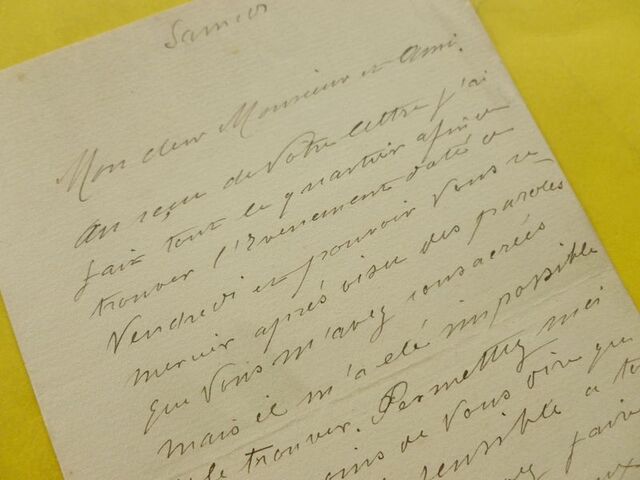 Samedi
Mon cher Monsieur et Ami.
Au reçu de votre lettre j'ai
fait tout le quartier afin de
trouver l'Evenement daté de
Vendredi et pouvoir vous re-
mercier après visu des paroles
que vous m'avez consacrées
mais il m'a été impossible
le trouver. Permettez moi
de vous dire que
sensible a to
faire